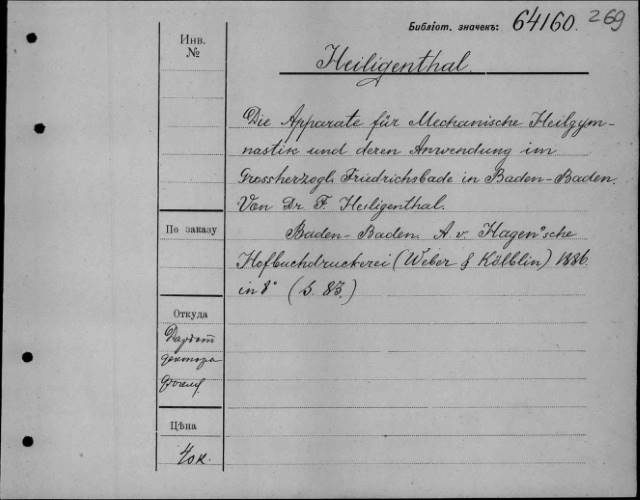 Библіот. значекъ: 64160. 269
Инв.
№
Heiligenthal.
Die Apparate für Mechanische Heilgym-
nastik und deren Anwendung im
Grossherzogl. Friedrichsbade in Baden-Baden.
Von Dr F. Heiligenthal.
По заказу
Baden-Baden. A v. Hagen'sche
Hofbuchdruckerei (Weber & Kölblin) 1886
in 8° (S. 83.)
Откуда
доктора
Цѣна
40к.